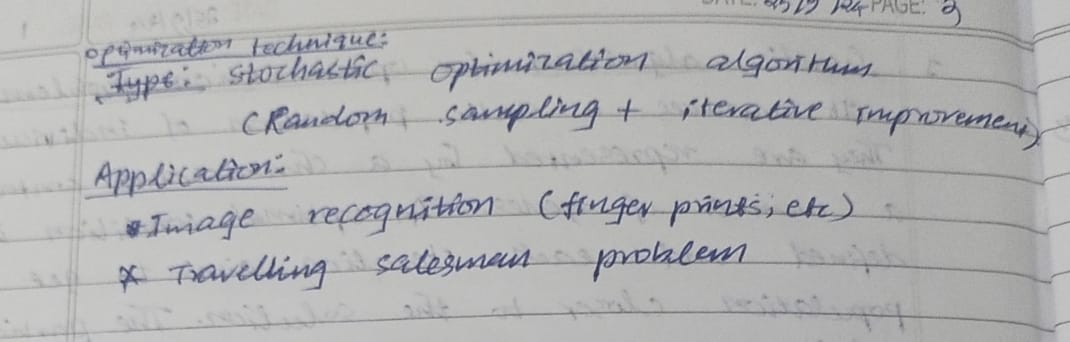 PAGE: 3
Optimization technique:
Type: Stochastic optimization algorithm
(Random sampling + iterative improvement)
Application:
* Image recognition (finger prints, etc)
* Travelling salesman problem